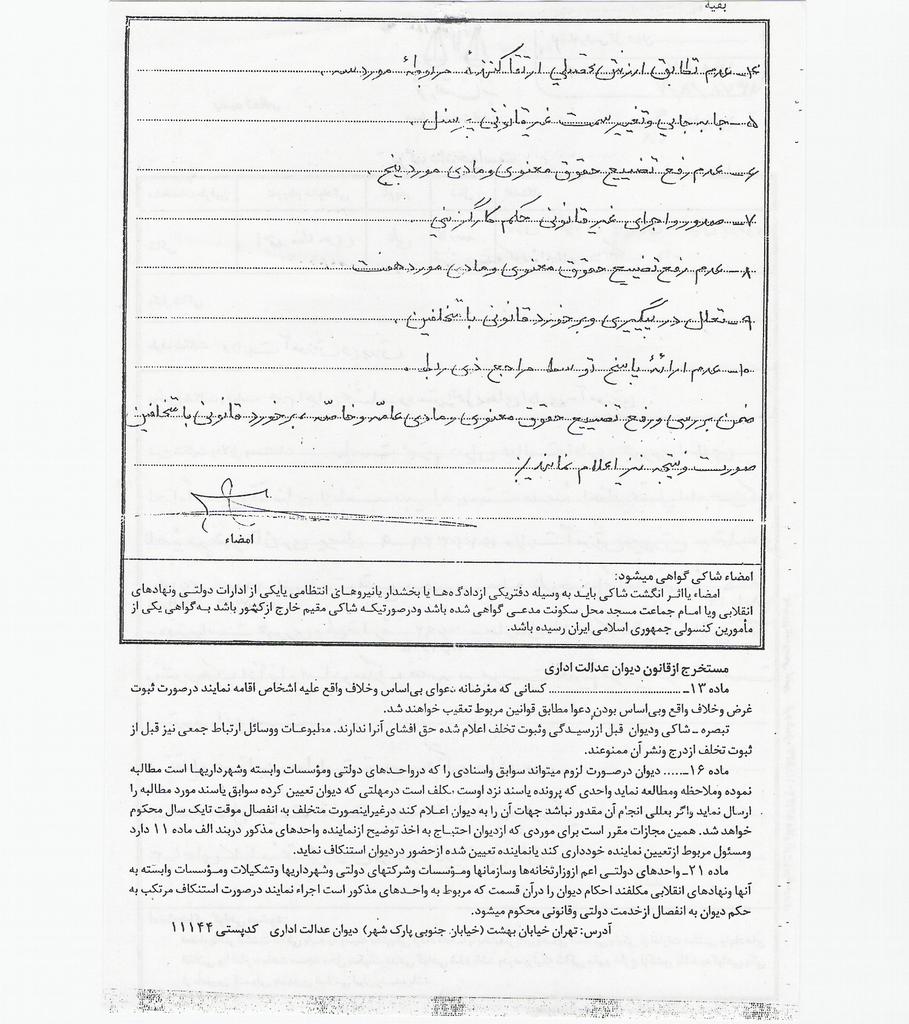 بقیه
۴ـ عدم تطابق ارزش عملی ارتقاء کننده مربوطهٔ مورد سه.
۵ـ جابه جایی و تغییر سمت غیر قانونی پرسنل.
۶ـ عدم رفع تضییع حقوق معنوی و مادی مورد پنج.
۷ـ صدور و اجرای غیر قانونی حکم کارگزینی
۸ـ عدم رفع تضییع حقوق معنوی و مادی مورد هفت.
۹ـ تعلل در پیگیری و برخورد قانونی با متخلفین.
۱۰ـ عدم ارائهٔ پاسخ توسط مراجع ذی ربط.
ضمن بررسی و رفع تضییع حقوق معنوی و مادی عامّه و خاصّه، برخورد قانونی با متخلفین
صورت و نتیجه نیز اعلام نمایند.
امضاء
امضاء شاکی گواهی میشود:
امضاء یااثر انگشت شاکی باید به وسیله دفتریکی ازدادگاهها یا بخشدار یانیروهای انتظامی یایکی از ادارات دولتی ونهادهای
انقلابی ویا امام جماعت مسجد محل سکونت مدعی گواهی شده باشد ودرصورتیکه شاکی مقیم خارج ازکشور باشد به گواهی یکی از
مأمورین کنسولی جمهوری اسلامی ایران رسیده باشد.
مستخرج ازقانون دیوان عدالت اداری
ماده ۱۳ـ ........ کسانی که مغرضانه دعوای بی اساس وخلاف واقع علیه اشخاص اقامه نمایند درصورت ثبوت
غرض وخلاف واقع وبی اساس بودن دعوا مطابق قوانین مربوط تعقیب خواهند شد.
تبصره ـ شاکی ودیوان قبل ازرسیدگی وثبوت تخلف اعلام شده حق افشای آنرا ندارند. مطبوعات ووسائل ارتباط جمعی نیز قبل از
ثبوت تخلف ازدرج ونشر آن ممنوعند.
ماده ۱۶ـ..... دیوان درصورت لزوم میتواند سوابق واسنادی را که درواحدهای دولتی ومؤسسات وابسته وشهرداریها است مطالبه
نموده وملاحظه ومطالعه نماید واحدی که پرونده یاسند نزد اوست مکلف است درمهلتی که دیوان تعیین کرده سوابق یاسند مورد مطالبه را
ارسال نماید واگر بعللی انجام آن مقدور نباشد جهات آن را به دیوان اعلام کند درغیراینصورت متخلف به انفصال موقت تایک سال محکوم
خواهد شد. همین مجازات مقرر است برای موردی که ازدیوان احتیاج به اخذ توضیح ازنماینده واحدهای مذکور دربند الف ماده ۱۱ دارد
ومسئول مربوط ازتعیین نماینده خودداری کند یانماینده تعیین شده ازحضور دردیوان استنکاف نماید.
ماده ۲۱ـ واحدهای دولتی اعم ازوزارتخانه‌ها وسازمانها ومؤسسات وشرکتهای دولتی وشهرداریها وتشکیلات ومؤسسات وابسته به
آنها ونهادهای انقلابی مکلفند احکام دیوان را درآن قسمت که مربوط به واحدهای مذکور است اجراء نمایند درصورت استنکاف مرتکب به
حکم دیوان به انفصال ازخدمت دولتی وقانونی محکوم میشود.
آدرس: تهران خیابان بهشت (خیابان جنوبی پارک شهر) دیوان عدالت اداری کدپستی ۱۱۱۴۴